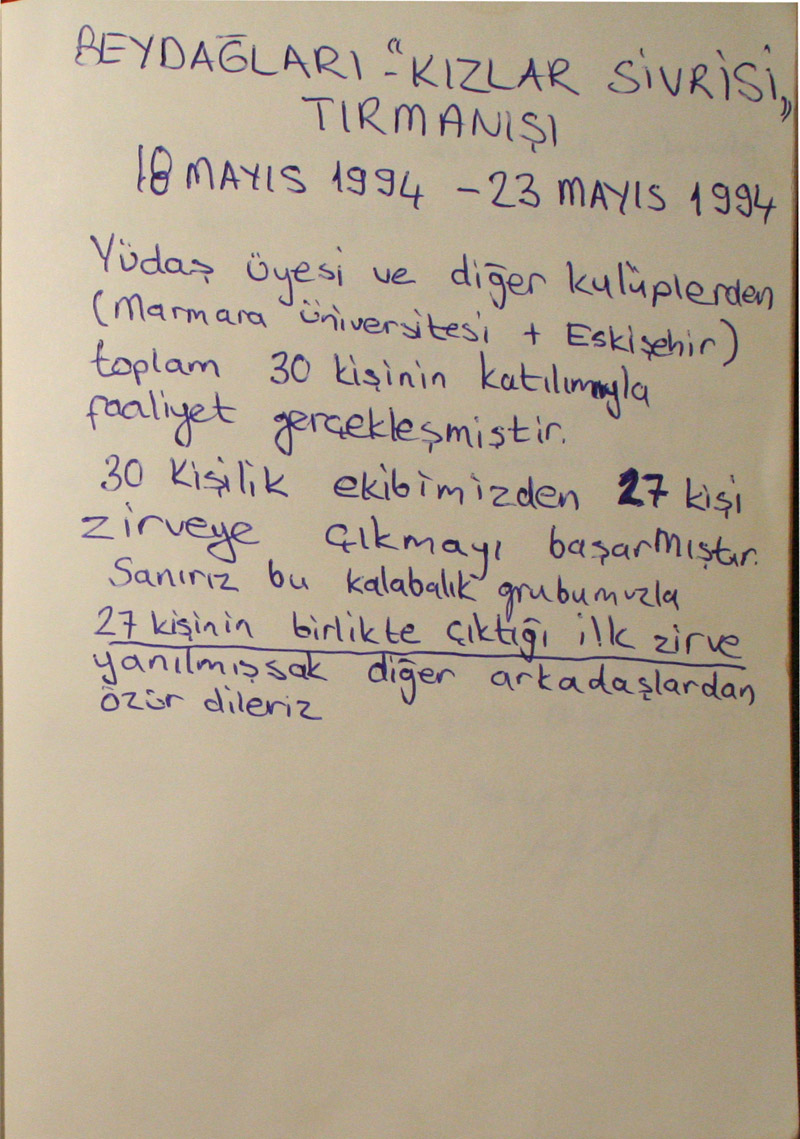 BEYDAĞLARI - "KIZLAR SİVRİSİ,,
TIRMANIŞI
18 MAYIS 1994 - 23 MAYIS 1994
Yüdaş üyesi ve diğer kulüplerden
(Marmara üniversitesi + Eskişehir)
toplam 30 kişinin katılımıyla
faaliyet gerçekleşmiştir.
30 kişilik ekibimizden 27 kişi
zirveye çıkmayı başarmıştır.
Sanırız bu kalabalık grubumuzla
27 kişinin birlikte çıktığı ilk zirve
yanılmışsak diğer arkadaşlardan
özür dileriz